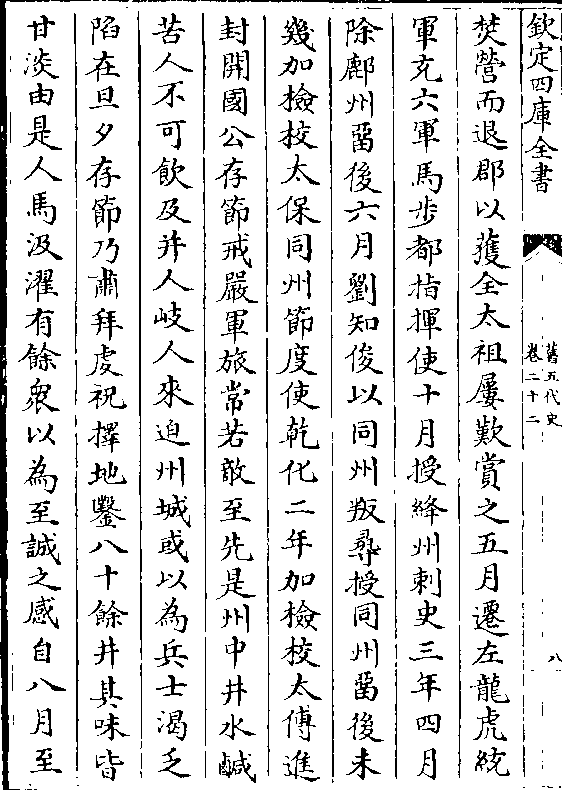 欽定四庫全書
舊五代史
卷二十二
八
焚營而退郡以獲全太祖屢歎賞之五月遷左龍虎統
軍充六軍馬步都指揮使十月授絳州刺史三年四月
除鄜州畱後六月劉知俊以同州叛尋授同州畱後未
幾加檢校太保同州節度使乾化二年加檢校太傅進
封開國公存節戒嚴軍旅常若敵至先是州中井水鹹
苦人不可飲及并人岐人來迫州城或以為兵士渴乏
陷在旦夕存節乃肅拜虔祝擇地鑿八十餘井其味皆
甘淡由是人馬汲濯有餘衆以為至誠之感自八月至